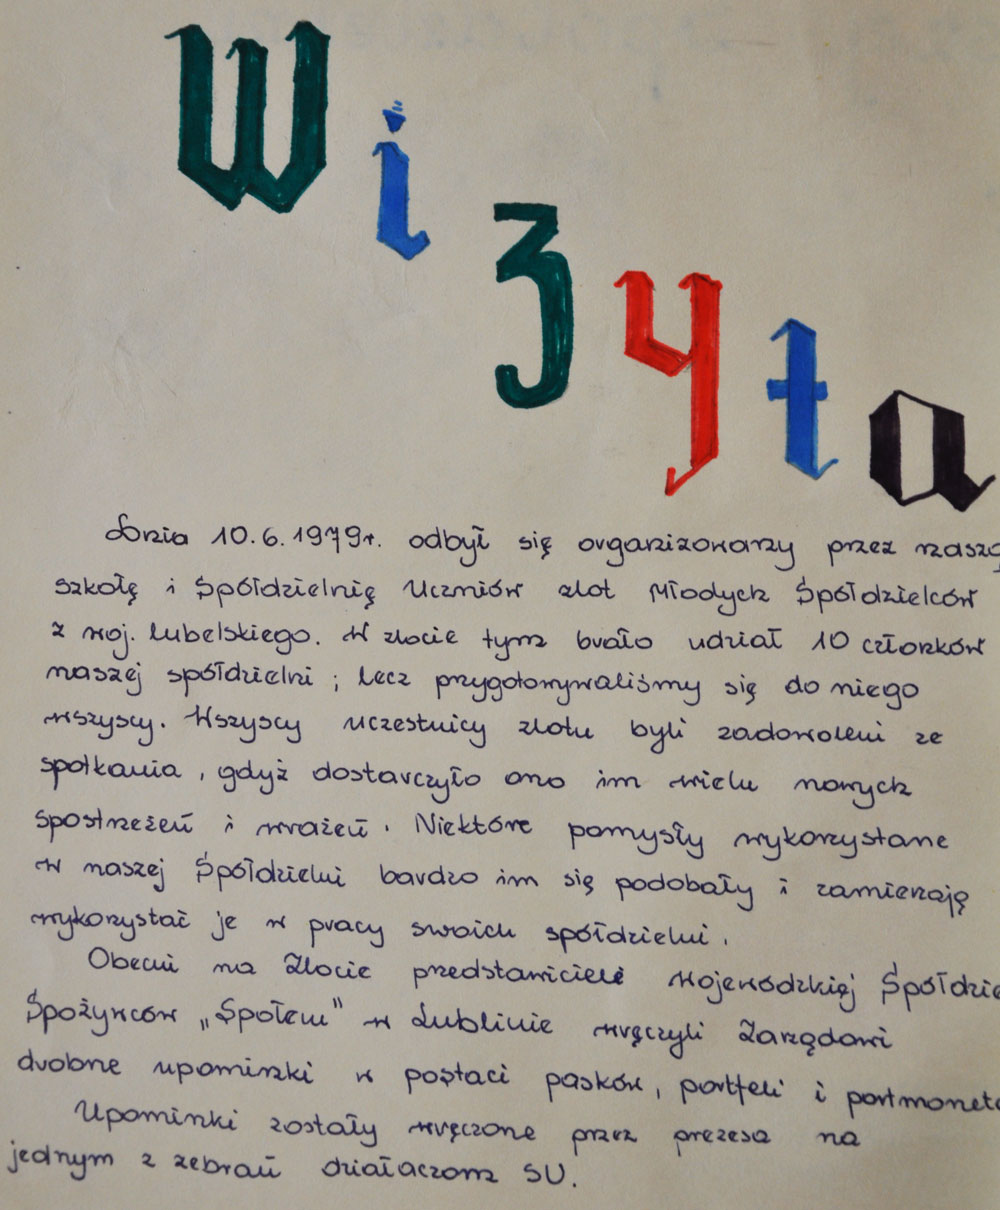 Wizyta
Dnia 10.6.1979r. odbył się organizowany przez naszą
szkołę i Spółdzielnię Uczniów zlot Młodych Spółdzielców
z woj. lubelskiego. W zlocie tym brało udział 10 członków
naszej spółdzielni ; lecz przygotowywaliśmy się do niego
wszyscy. Wszyscy uczestnicy zlotu byli zadowoleni ze
spotkania , gdyż dostarczyło ono im wielu nowych
spostrzeżeń i wrażeń . Niektóre pomysły wykorzystane
w naszej Spółdzielni bardzo im się podobały i zamierzają
wykorzystać je w pracy swoich spółdzielni .
Obecni na Zlocie przedstawiciele Wojewódzkiej Spółdzie
Spożywców „Społem" w Lublinie wręczyli Zarządowi
drobne upominki w postaci pasków , portfeli i portmonet
Upominki zostały wręczone przez prezesa na
jednym z zebrań działaczom SU.